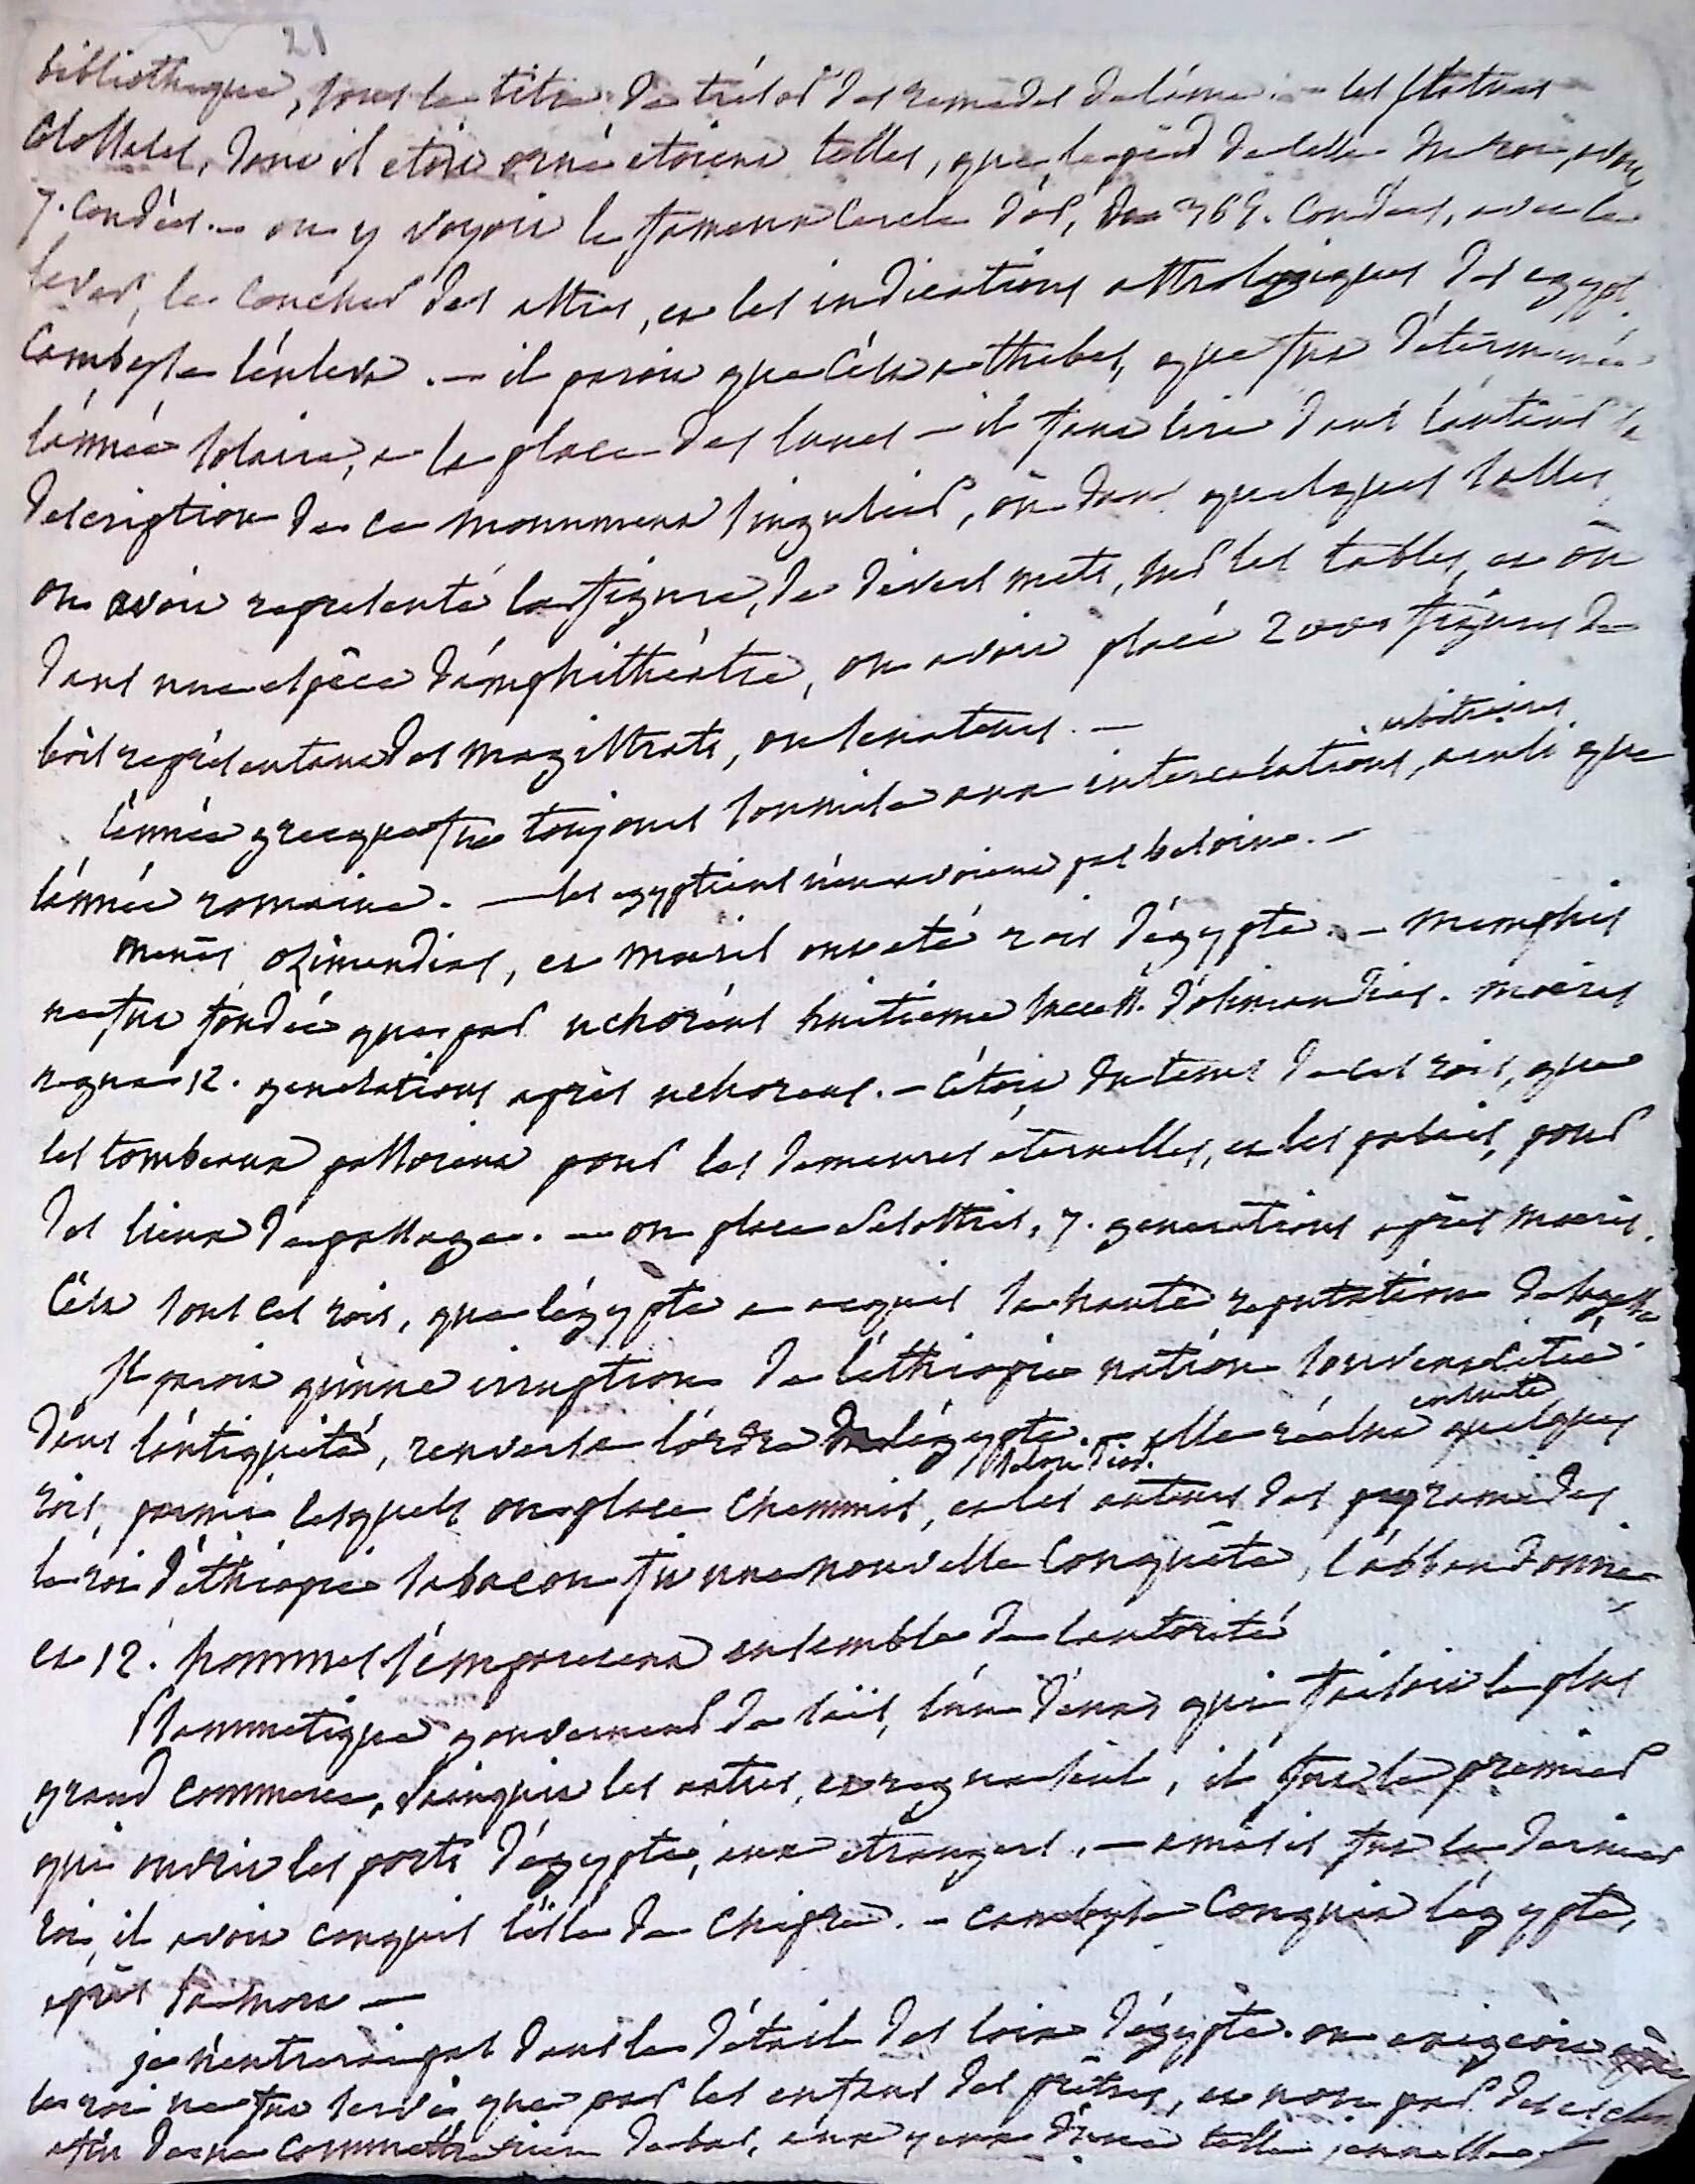 21
bibliotheque, sous le titre de trésor des remedes de l'áme. - les statues
colossales, dont il etoit orné etoient telles, que le pied de celle du roi, avoit
7. coudées. - on y voyoit le fameux cercle d'or, de 365. coudées, avec le
lever, le coucher des astres, et les indications astrologiques des egypt.
Cambyse l'enleva. - il paroit que c'est a thebes, que fut déterminée
l'année solaire, a la place des lunes - il faut lire dans l'auteur la
description de ce monument singulier, où dans quelques salles,
on avoit representé la figure, de divers mets, sur les tables, et où
dans une espèce d'amphithéatre, on avoit placé 2000 figures de
bois representant des magistrats, ou senateurs. -
arbitraires
l'année grecque fut toujours soumise aux intercalations, ainsi que
l'année romaine. - les egyptiens n'en avoient pas besoin. -
menès osimandias, et moeris ont eté rois d'égypte. - memphis
ne fut fondée que par uchoréus huitième success. d'osimandias. moeris
regna 12. generations après uchoreus. - c'étoit du tems de ces rois, que
les tombeaux passoient pour les demeures éternelles, et les palais, pour
des lieux de passage. - on place sesostris, 7. generations après moeris.
C'est sous ces rois, que l'égypte a acquis sa haute reputation de sagesse
Il paroit qu'une irruption de l'éthiopie nation souvent citée
dans l'antiquité, renversa l'órdre de l'égypte. - elle réélut ensuite quelques
selon diod.
rois, parmi lesquels on place chemmis, et les auteurs des pyramides
le roi d'éthiopie sabacon fit une nouvelle conquête, l'abbandonna
et 12. hommes s'emparerent ensemble de l'autorité
Psammetique gouverneur de saïs, l'un d'eux qui faisoit le plus
grand commerce, vainquit les autres, et regna seul, il fut le premier
qui ouvrit les ports d'égypte, aux etrangers. - amasis fut le dernier
roi, il avoit conquis l'isle de chipre. - cambyse conquit l'égypte,
après sa mort -
je n'entrerai pas dans le détail des loix d'égypte. on exigeoit que
le roi ne fut servi que par les enfans des prêtres, et non par des esclaves
afin de ne commettre rien de bas, aux yeux d'une telle jeunesse